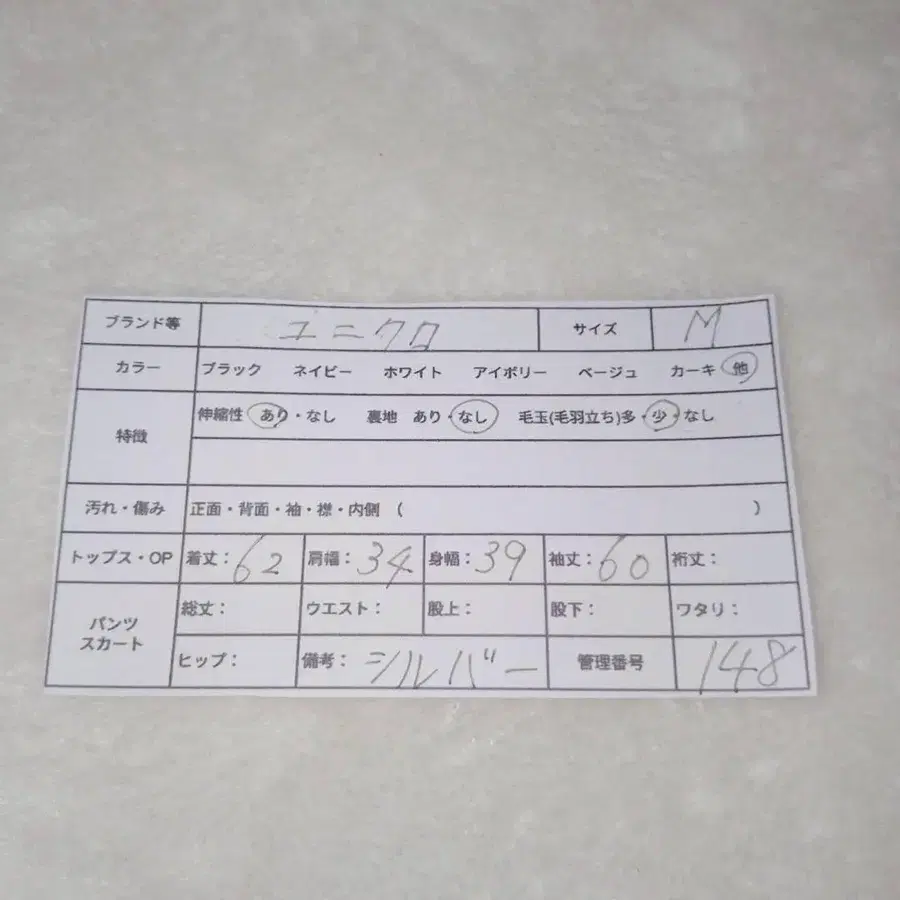 ブランド等 ユニクロ サイズ M
カラー ブラック ネイビー ホワイト アイボリー ベージュ カーキ 他
特徴 伸縮性 あり・なし 裏地 あり・なし 毛玉(毛羽立ち)多・少・なし
汚れ・傷み 正面・背面・袖・襟・内側 ( )
トップス・OP 着丈：62 肩幅：34 身幅：39 袖丈：60 裄丈：
パンツ スカート 総丈： ウエスト： 股上： 股下： ワタリ：
ヒップ： 備考：シルバー 管理番号 148